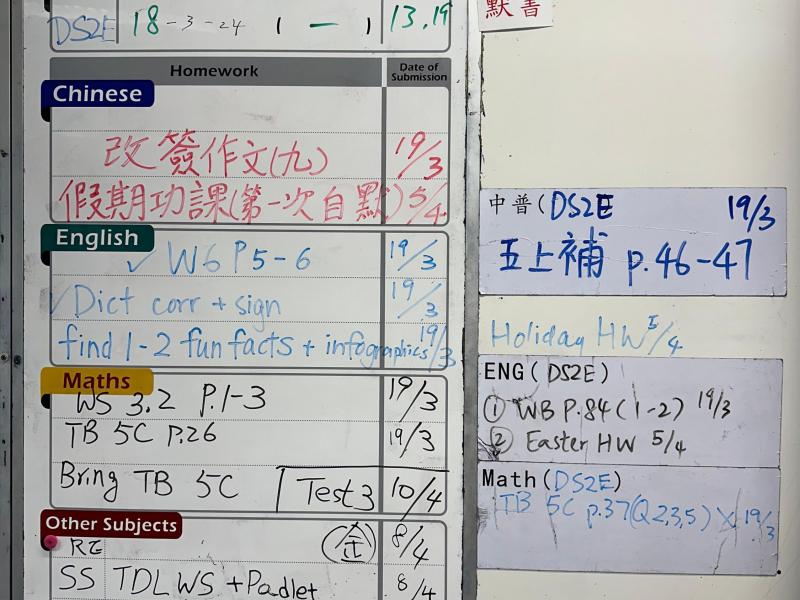 DS2E 18-3-24 1 — 1 13.19
默書
Homework Date of Submission
Chinese
改簽作文(九) 19/3
假期功課(第一次自默) 5/4
English
✓ W6 P5-6 19/3
✓ Dict corr + sign 19/3
find 1-2 fun facts + infographics 19/3
Maths
WS 3.2 P.1-3 19/3
TB 5C P.26 19/3
Bring TB 5C Test 3 10/4
Other Subjects
RE 8/4
SS TDL WS + Padlet 8/4
中普(DS2E 19/3
五上補 p.46-47
Holiday HW 5/4
ENG(DS2E)
① WB P.84(1-2) 19/3
② Easter HW 5/4
Math(DS2E)
TB 5C p.37(Q2,3,5) 19/3